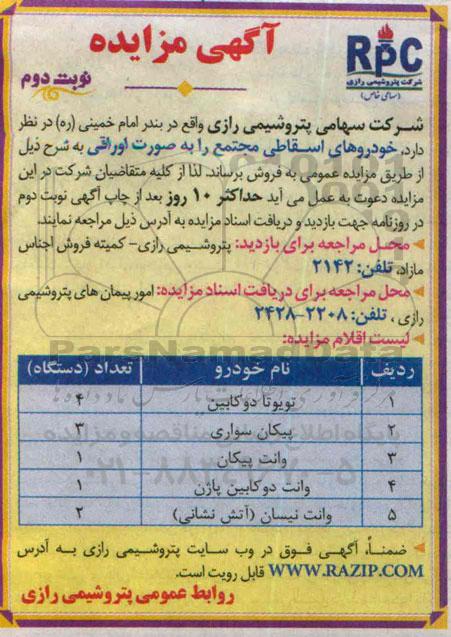 آگهی مزایده
RPC
شرکت پتروشیمی رازی
(سهامی خاص)
نوبت دوم
شرکت سهامی پتروشیمی رازی واقع در بندر امام خمینی (ره) در نظر
دارد، خودروهای اسقاطی مجتمع را به صورت اوراقی به شرح ذیل
از طریق مزایده عمومی به فروش برساند. لذا از کلیه متقاضیان شرکت در این
مزایده دعوت به عمل می آید حداکثر ۱۰ روز بعد از چاپ آگهی نوبت دوم
در روزنامه جهت بازدید و دریافت اسناد مزایده به آدرس ذیل مراجعه نمایند.
محل مراجعه برای بازدید: پتروشیمی رازی- کمیته فروش اجناس
مازاد، تلفن: ۲۱۴۲
محل مراجعه برای دریافت اسناد مزایده: امور پیمان های پتروشیمی
رازی، تلفن: ۲۲۰۸-۲۴۲۸
لیست اقلام مزایده:
ردیف نام خودرو تعداد (دستگاه)
۱ تویوتا دوکابین ۴
۲ پیکان سواری ۳
۳ وانت پیکان ۱
۴ وانت دوکابین پاژن ۱
۵ وانت نیسان (آتش نشانی) ۲
ضمناً، آگهی فوق در وب سایت پتروشیمی رازی به آدرس
WWW.RAZIP.COM قابل رویت است.
روابط عمومی پتروشیمی رازی
ParsNamadData